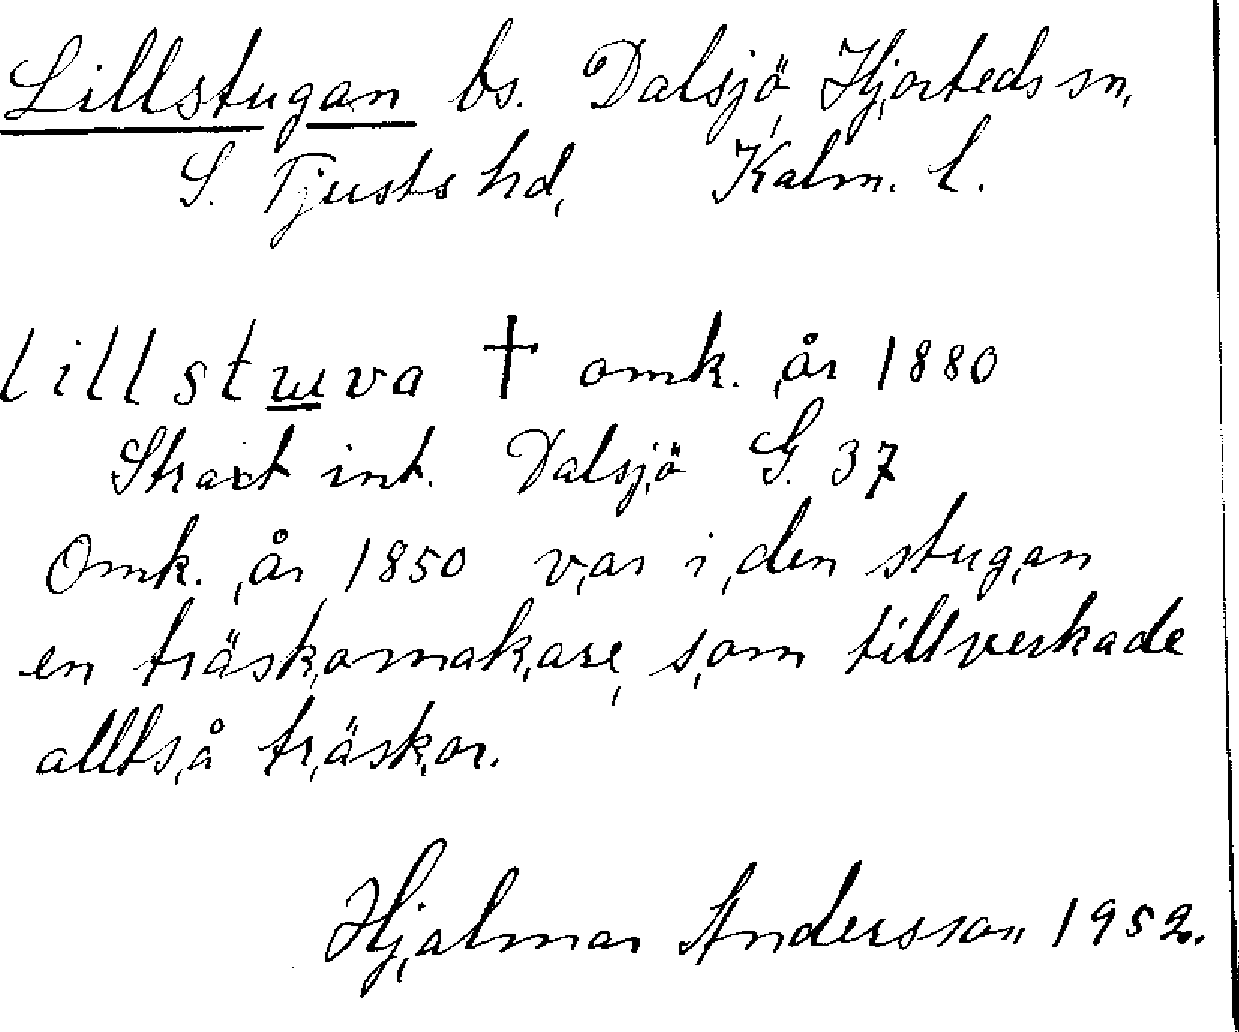 Lillstugan bs. Dalsjö, Hjorteds sn,
S. Tjusts hd, Kalm. l.
lillstuva † omk. år 1880
Straxt int. Dalsjö G. 37
Omk. år 1850 var i den stugan
en träskomakare, som tillverkade
alltså träskor.
Hjalmar Andersson 1952.